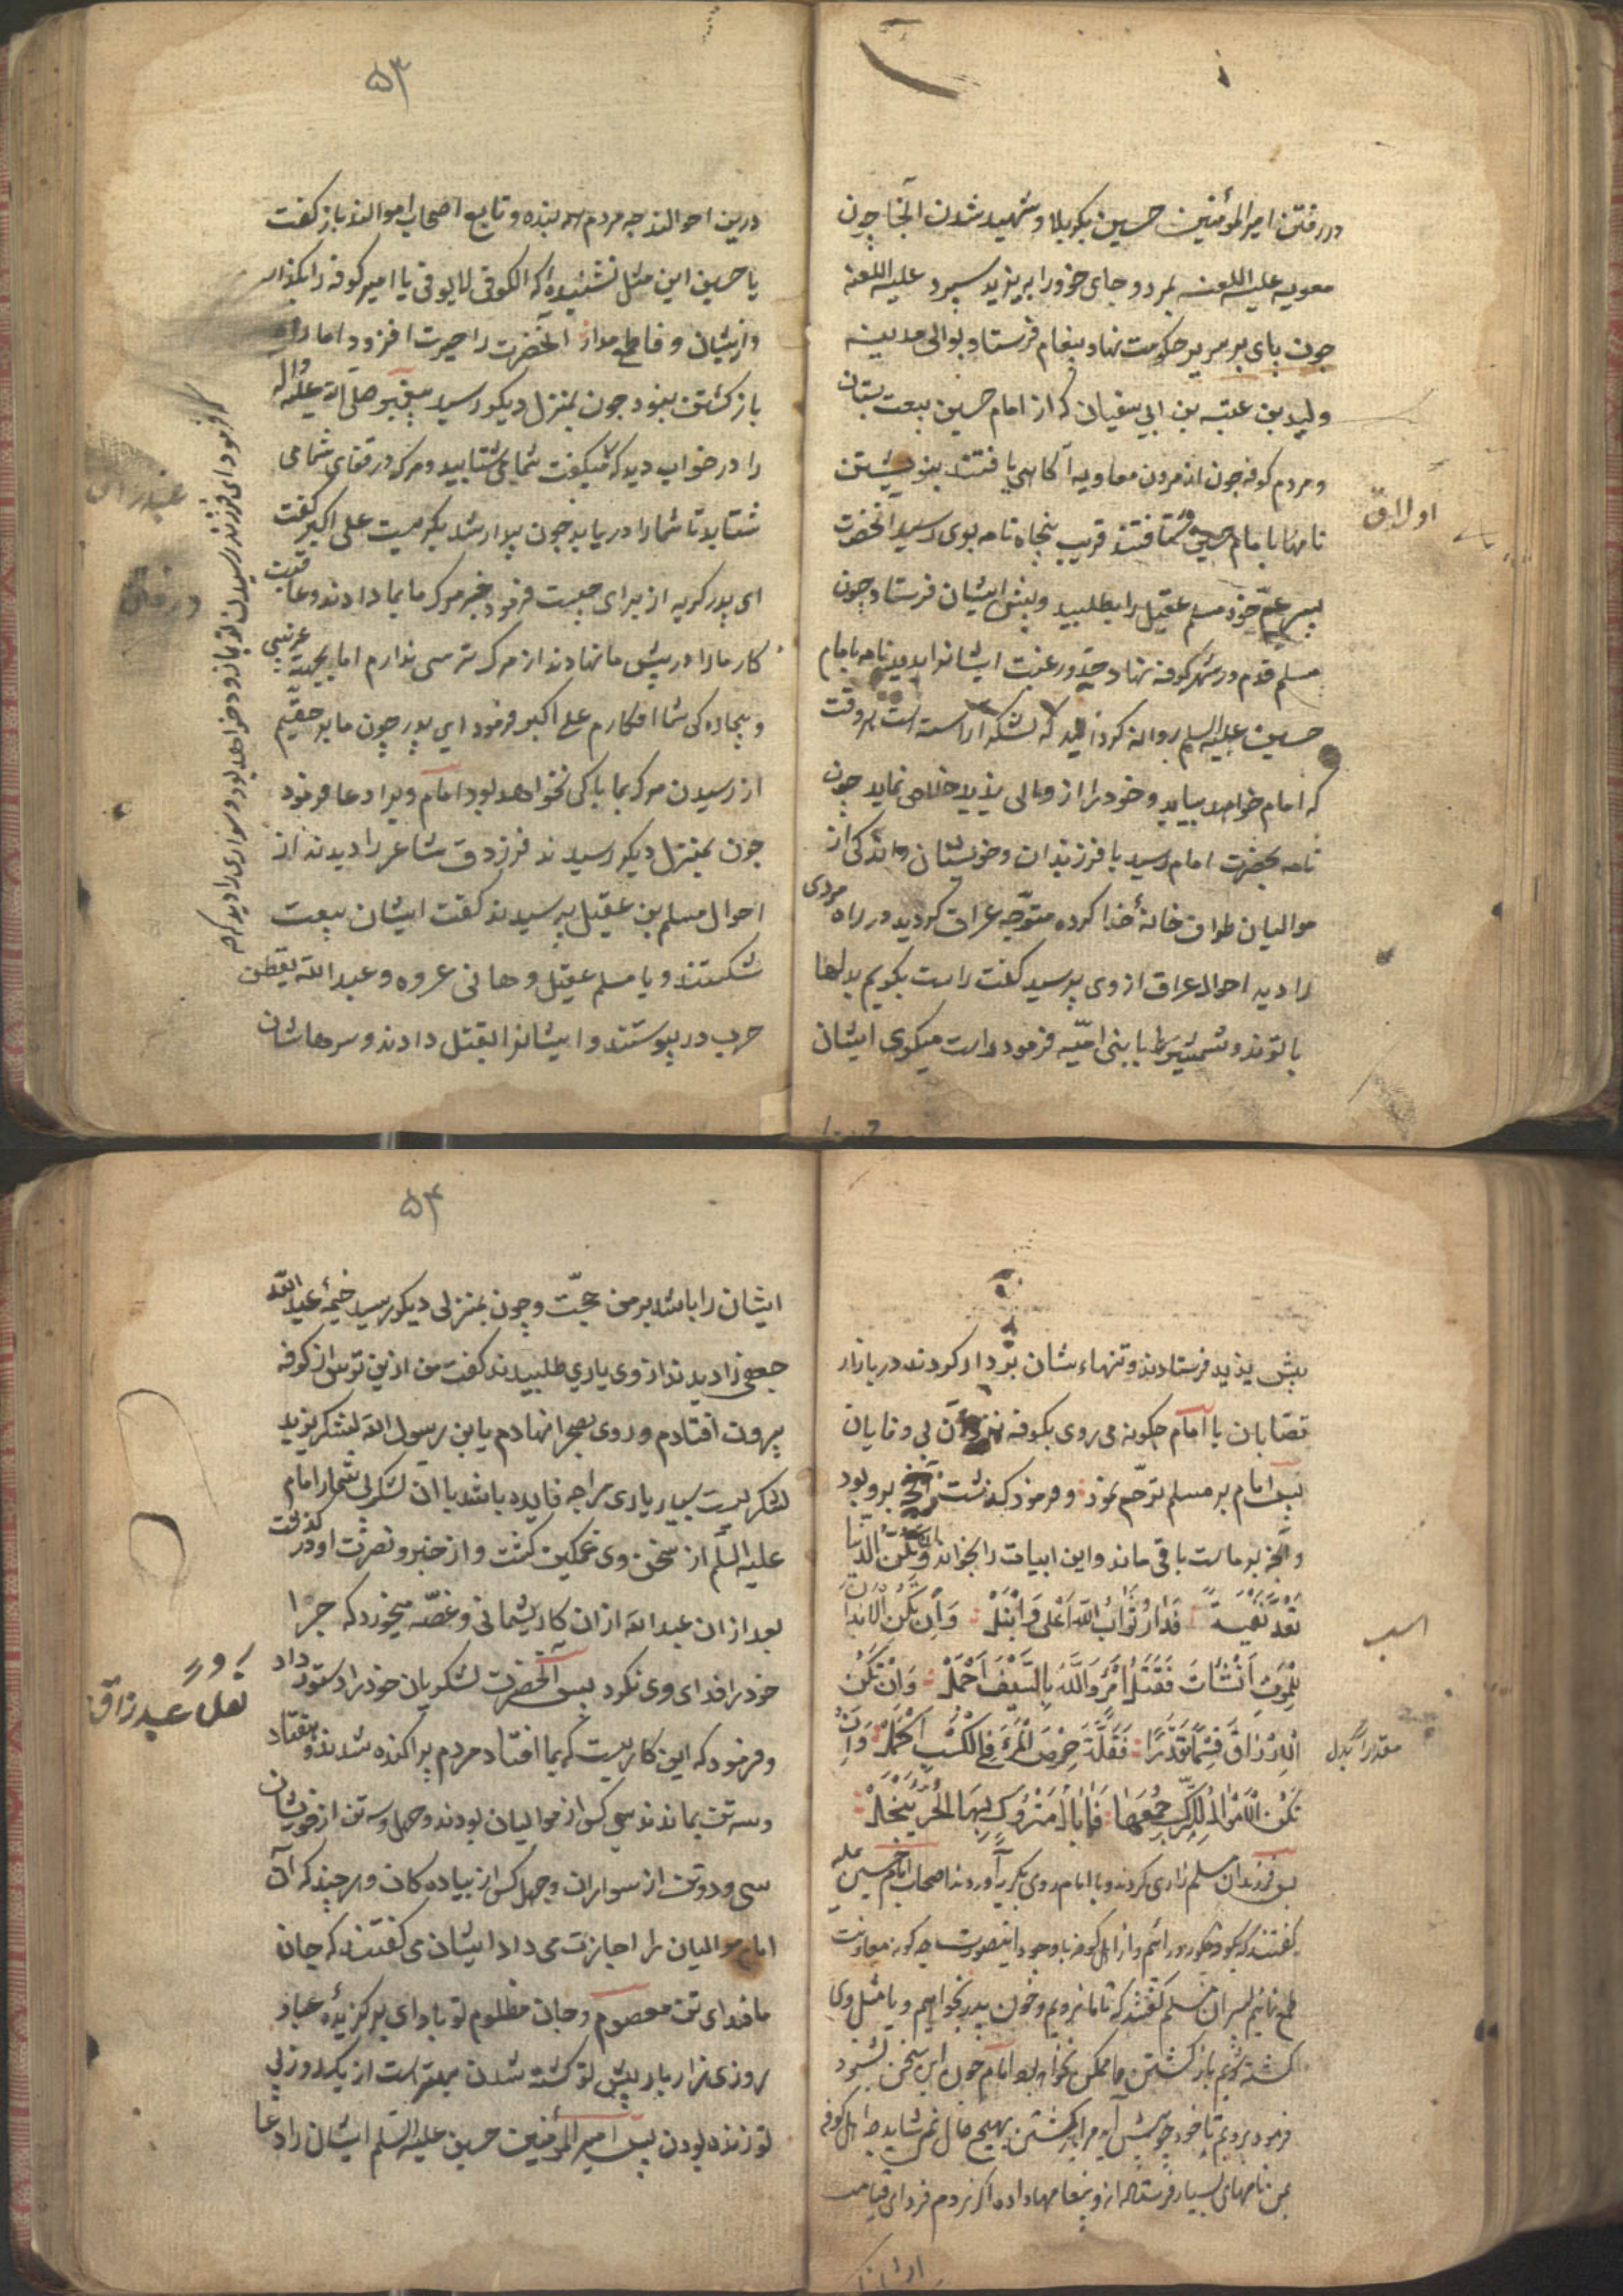 در رفتن امیر المؤمنین حسین بکربلا و شهید شدن آنجا چون
معویه علیه اللعنه بمرد و جای خود را بر یزید سپرد علیه اللعنه
چون پای بر سریر حکومت نهاد پیغام فرستاد بوالی مدینه
ولید بن عتبه بن ابی سفیان که از امام حسین بیعت بستان
و مردم کوفه چون از مردن معاویه آکاهی یافتند
نامها بامام حسین قریب پنجاه نامه بوی رسید انحضرت
پسر عمّ خود مسلم عقیل را بطلبید و پیش ایشان فرستاد چون
مسلم قدم در شهر کوفه نهاد جد و رغبت ایشانرا بدید نامه بامام
حسین علیه السلم روانه کردانید که لشکر اراسته است هر وقت
که امام خواهد بیاید و خود را از خلاص نماید چون
نامه بحضرت امام رسید با فرزندان و خویشان از
موالیان طواف خانهٔ خدا کرده متوجّه عراق کردید در راه مردی
را دید احوال عراق از وی پرسید کفت راست بکویم بدلها
با تو اند و شمشیرها با بنی امیّه فرمود راست میکوی ایشان
اولاق
۵۳
درین احوالند چه مردم بنده و تابع اصحاب اموالند باز کفت
یا حسین این مثل نشنیدهٔ که الکوفی لا یوفی یا امیر کوفه را بکذار
وازیشان وفا طمع مدار آنحضرت را حیرت افزود اما راه
باز کشتن نبود چون بمنزل دیکر رسید پیغمبر صلّی الله علیه واله
را در خواب دید که میکفت شما می شتابید و مرک در قفای شما می
شتابد تا شما را دریابد چون بیدار شد بکریست علی اکبر کفت
ای پدر کریه از برای چیست فرمود خبر مرک ما بما دادند و عاقبت
کار ما را در پیش ما نهادند از مرک ترسی ندارم اما بجهت غریبی
و بیچاره کی شما افکارم علی اکبر فرمود ای پدر چون ما بر حقّیم
از رسیدن مرک بما باکی نخواهد بود امام ویرا دعا فرمود
چون بمنزل دیکر رسیدند فرزدق شاعر را دیدند از
احوال مسلم بن عقیل پرسیدند کفت ایشان بیعت
شکستند و با مسلم عقیل و هانی عروه و عبد الله یقطن
حرب در پیوستند و ایشانرا بقتل دادند و سرهاشان
فرمود ای فرزند رسیدن تو بانزد خواهد بود و سواری را دید که
پیش یزید فرستادند و تنهاء شان بر دار کردند در بازار
قصّابان یا امام چکونه می روی بکوفه بی وفایان
پس امام بر مسلم ترحّم نمود و فرمود کذشت آنچه برو بود
و آنچه بر ماست باقی ماند و این ابیات را بخواند وان تکن الدنیا
تعدّ نفیسة فدار ثواب الله اعلی وانبل وان تکن الابدان
للموت انشأت فقتل امرء والله بالسیف اجمل وان تکن
الارزاق قسما تقدّرا فقلّة حرص المرء فی الکسب اکمل وان
تکن الاموال للترک جمعها فما بال متروک بها الحرّ یبخل
پس فرزندان مسلم زاری کردند و با امام روی بکریه آوردند اصحاب امام حسین علیه
کفتند که بکوفه و از اهل کوفه با وجود اینصورت چه کونه معاونت
طمع نمائیم پسران مسلم کفتند که تا ما نرویم و خون پدر نخواهیم و یا مثل وی
کشته شویم باز کشتن ما ممکن نخواهد بود امام چون این سخن بشنود
فرمود برویم تا خود چه پیش آید مرا باز کشتن بهیچ حال نمی شاید چه اهل کوفه
بمن نامهای بسیار فرستاده اند و پیغامها داده اکر نروم فردای قیامت
اسب
مقدرا بدل
۵۴
ایشان را باشد بر من حجّت و چون بمنزلی دیکر رسید خیمهٔ عبد الله
جعفی را دیدند از وی یاری طلبیدند کفت من ازین ترس از کوفه
بیرون افتادم و روی بصحرا نهادم یا بن رسول الله لشکر یزید
لشکریست بسیار یاری مرا چه فایده باشد با ان لشکر بی شمار امام
علیه السلّم از سخن وی غمکین کشت و از خیر و نصرت او درکذشت
بعد از ان عبد الله ازان کار پشیمانی و غصّه میخورد که چرا
خود را فدای وی نکرد پس آنحضرت لشکریان خود را دستور داد
و فرمود که این کاریست که بما افتاد مردم پراکنده شدند و هفتاد
و سه تن بماندند سی کس از موالیان بودند و چهل و سه تن از خویشان
سی و دو تن از سواران و چهل کس از پیاده کان و هر چند که آن
امام موالیان را اجازت می داد ایشان می کفتند که جان
ما فدای تن معصوم و جان مظلوم تو باد ای برکزیدهٔ عباد
روزی هزار بار پیش تو کشته شدن بهتر است از یک روز بی
تو زنده بودن پس امیر المؤمنین حسین علیه السلّم ایشان را دعا